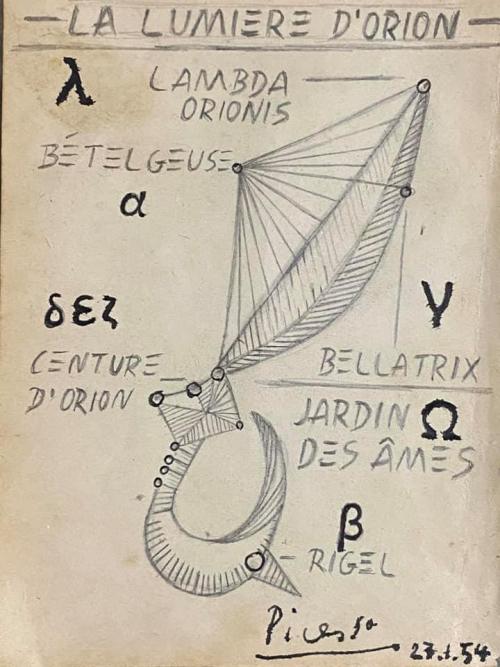 LA LUMIERE D'ORION
λ
LAMBDA
ORIONIS
BÉTELGEUSE
α
δεζ
γ
CENTURE
D'ORION
BELLATRIX
JARDIN Ω
DES ÂMES
β
RIGEL
Picasso
27.1.54.